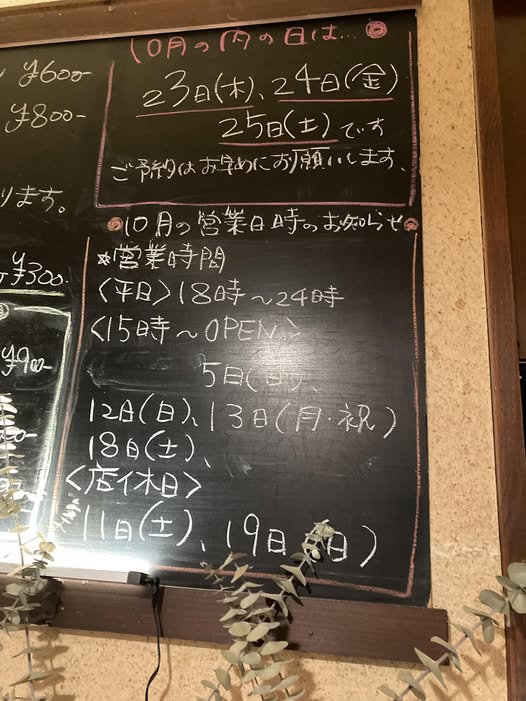 10月の肉の日は…
23日(木)、24日(金)
25日(土)です
ご予約はお早めにお願いします。
¥600-
¥800-
ります。
¥300-
¥900-
10月の営業日時のお知らせ
☆営業時間
〈平日〉18時〜24時
〈15時〜OPEN〉
5日(日)、
12日(日)、13日(月・祝)
18日(土)、
〈店休日〉
11日(土)、19日(日)